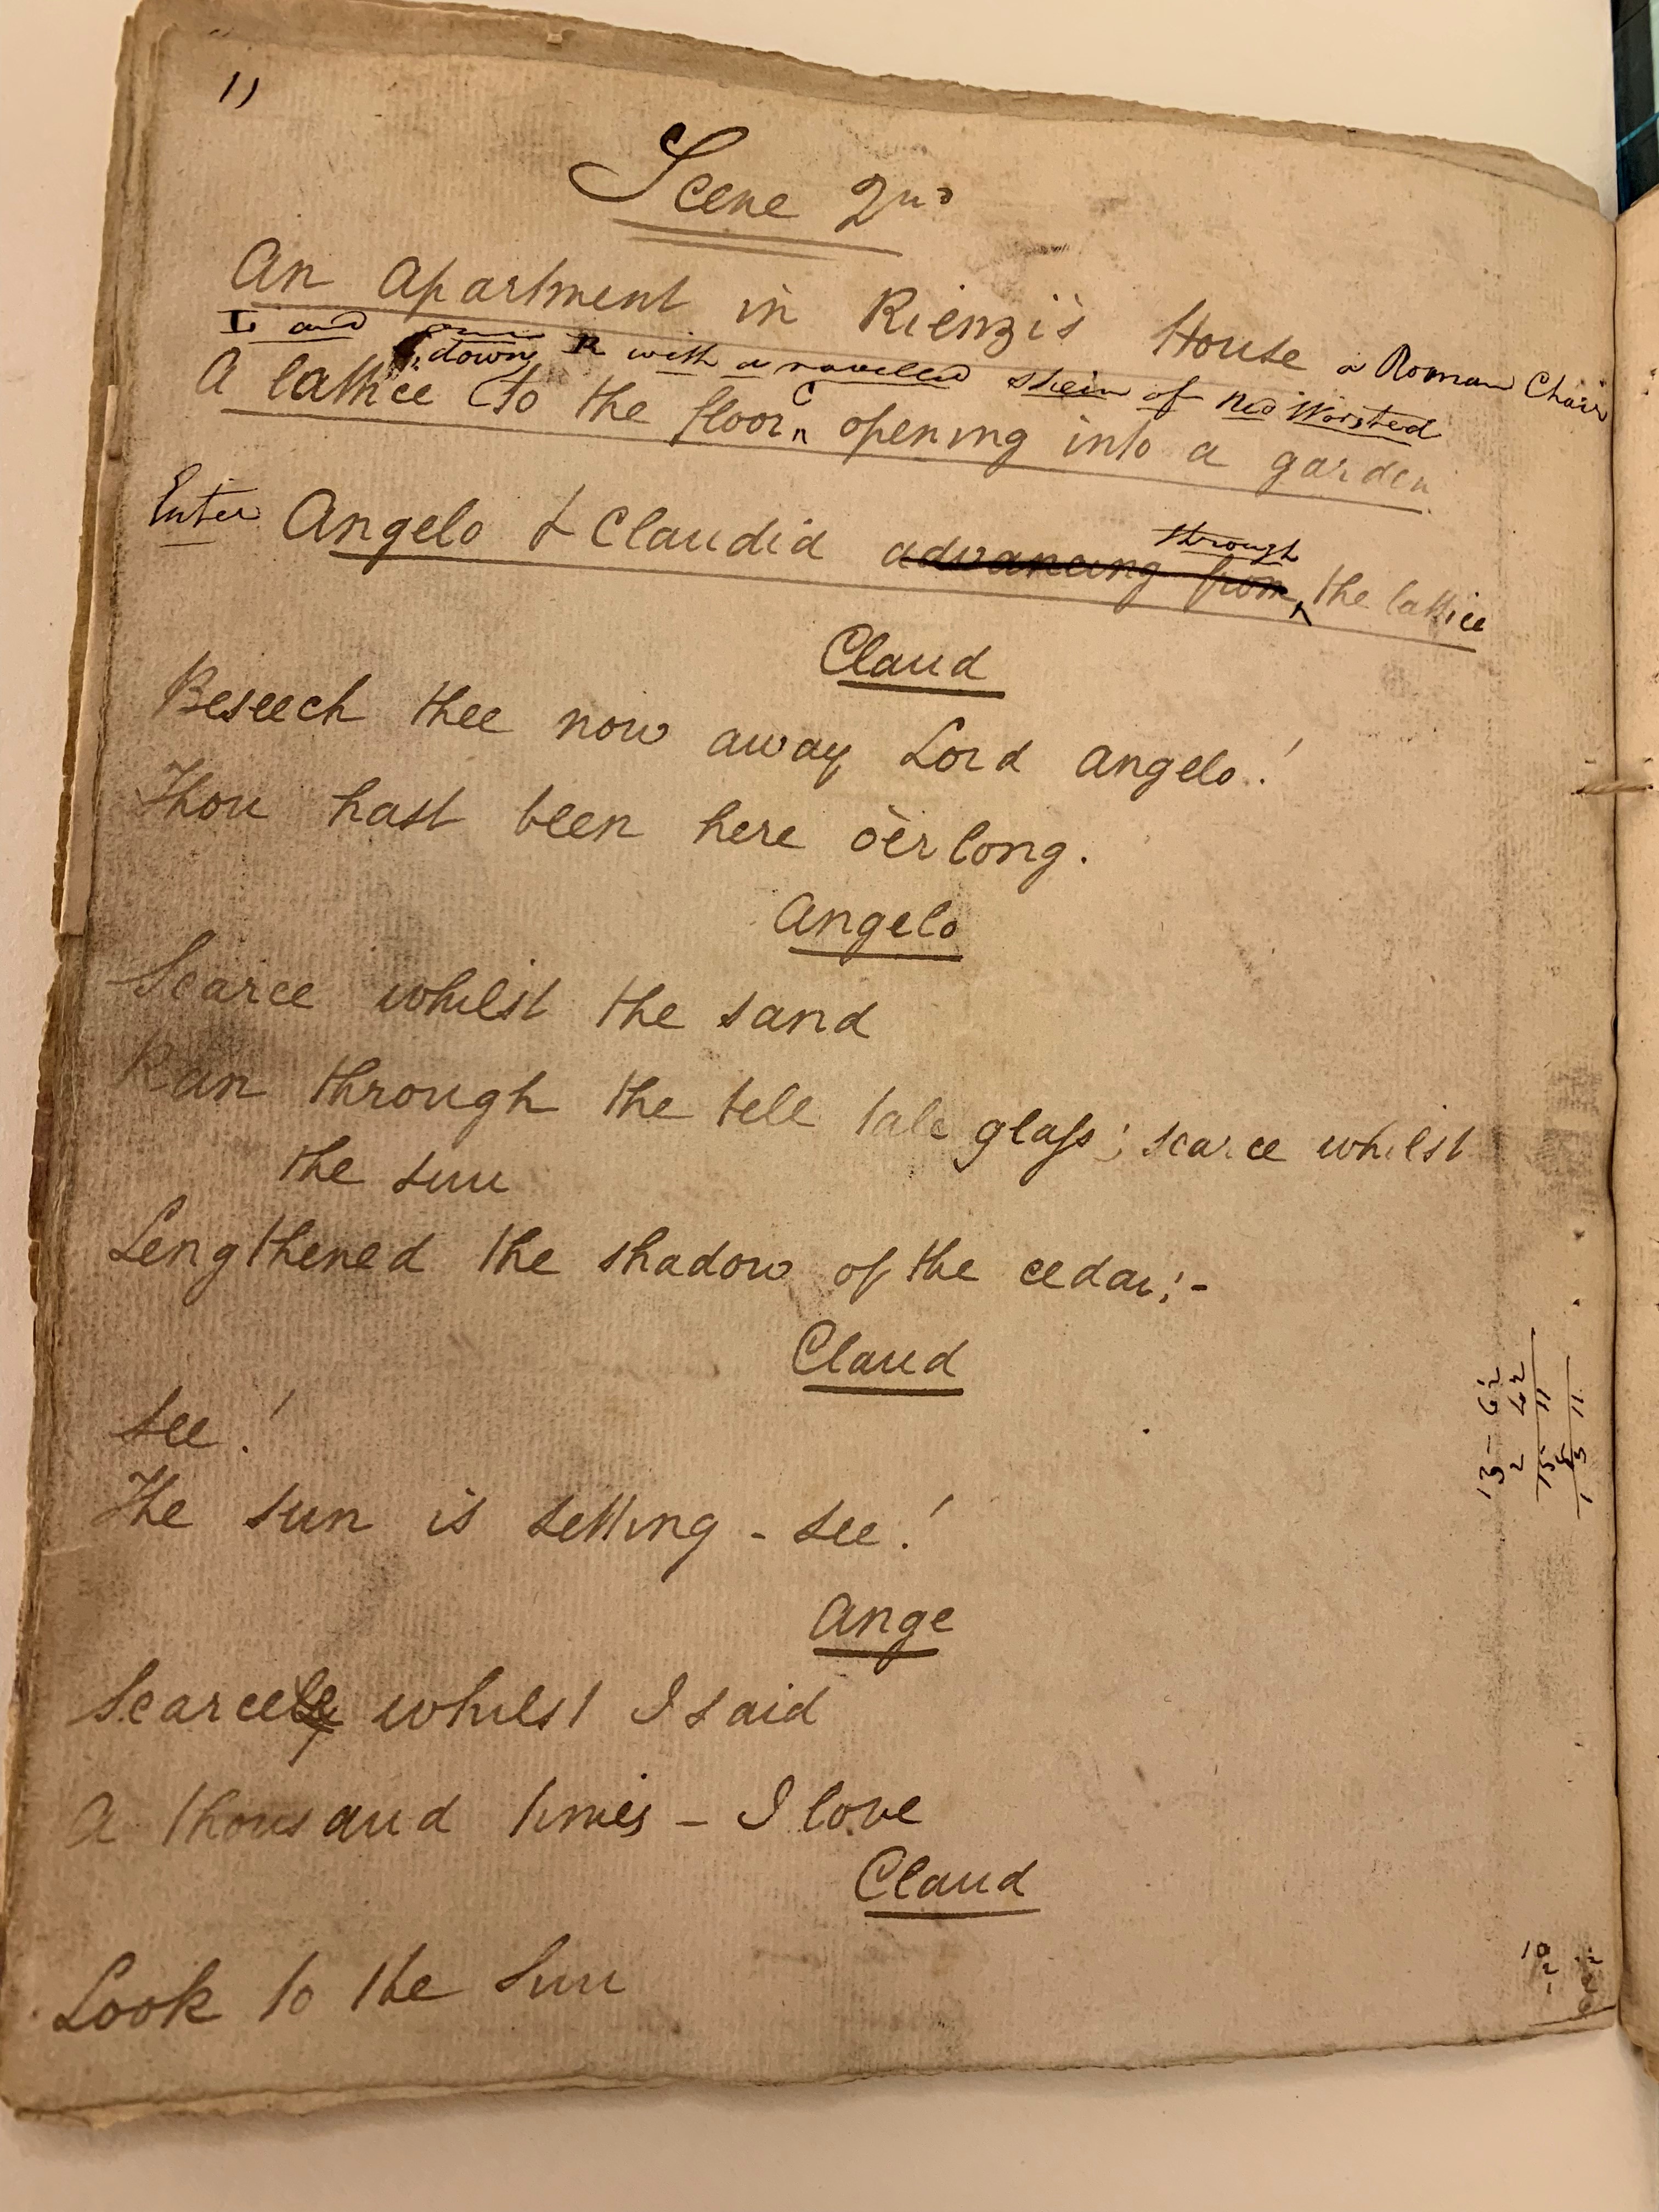 11
Scene 2nd
An Apartment in Rienzi's House a Roman Chair
L and down R with a ravelled skein of Red Worsted
A lattice to the floor C opening into a garden
Enter Angelo & Claudia advancing from through the lattice
Claud
Beseech thee now away Lord Angelo!
Thou hast been here o'er long.
Angelo
Scarce whilst the sand
Ran through the tell tale glass; scarce whilst
the sun
Lengthened the shadow of the cedar;-
Claud
See!
The sun is setting - see!
Ange
Scarcely whilst I said
A thousand times - I love
Claud
Look to the Sun